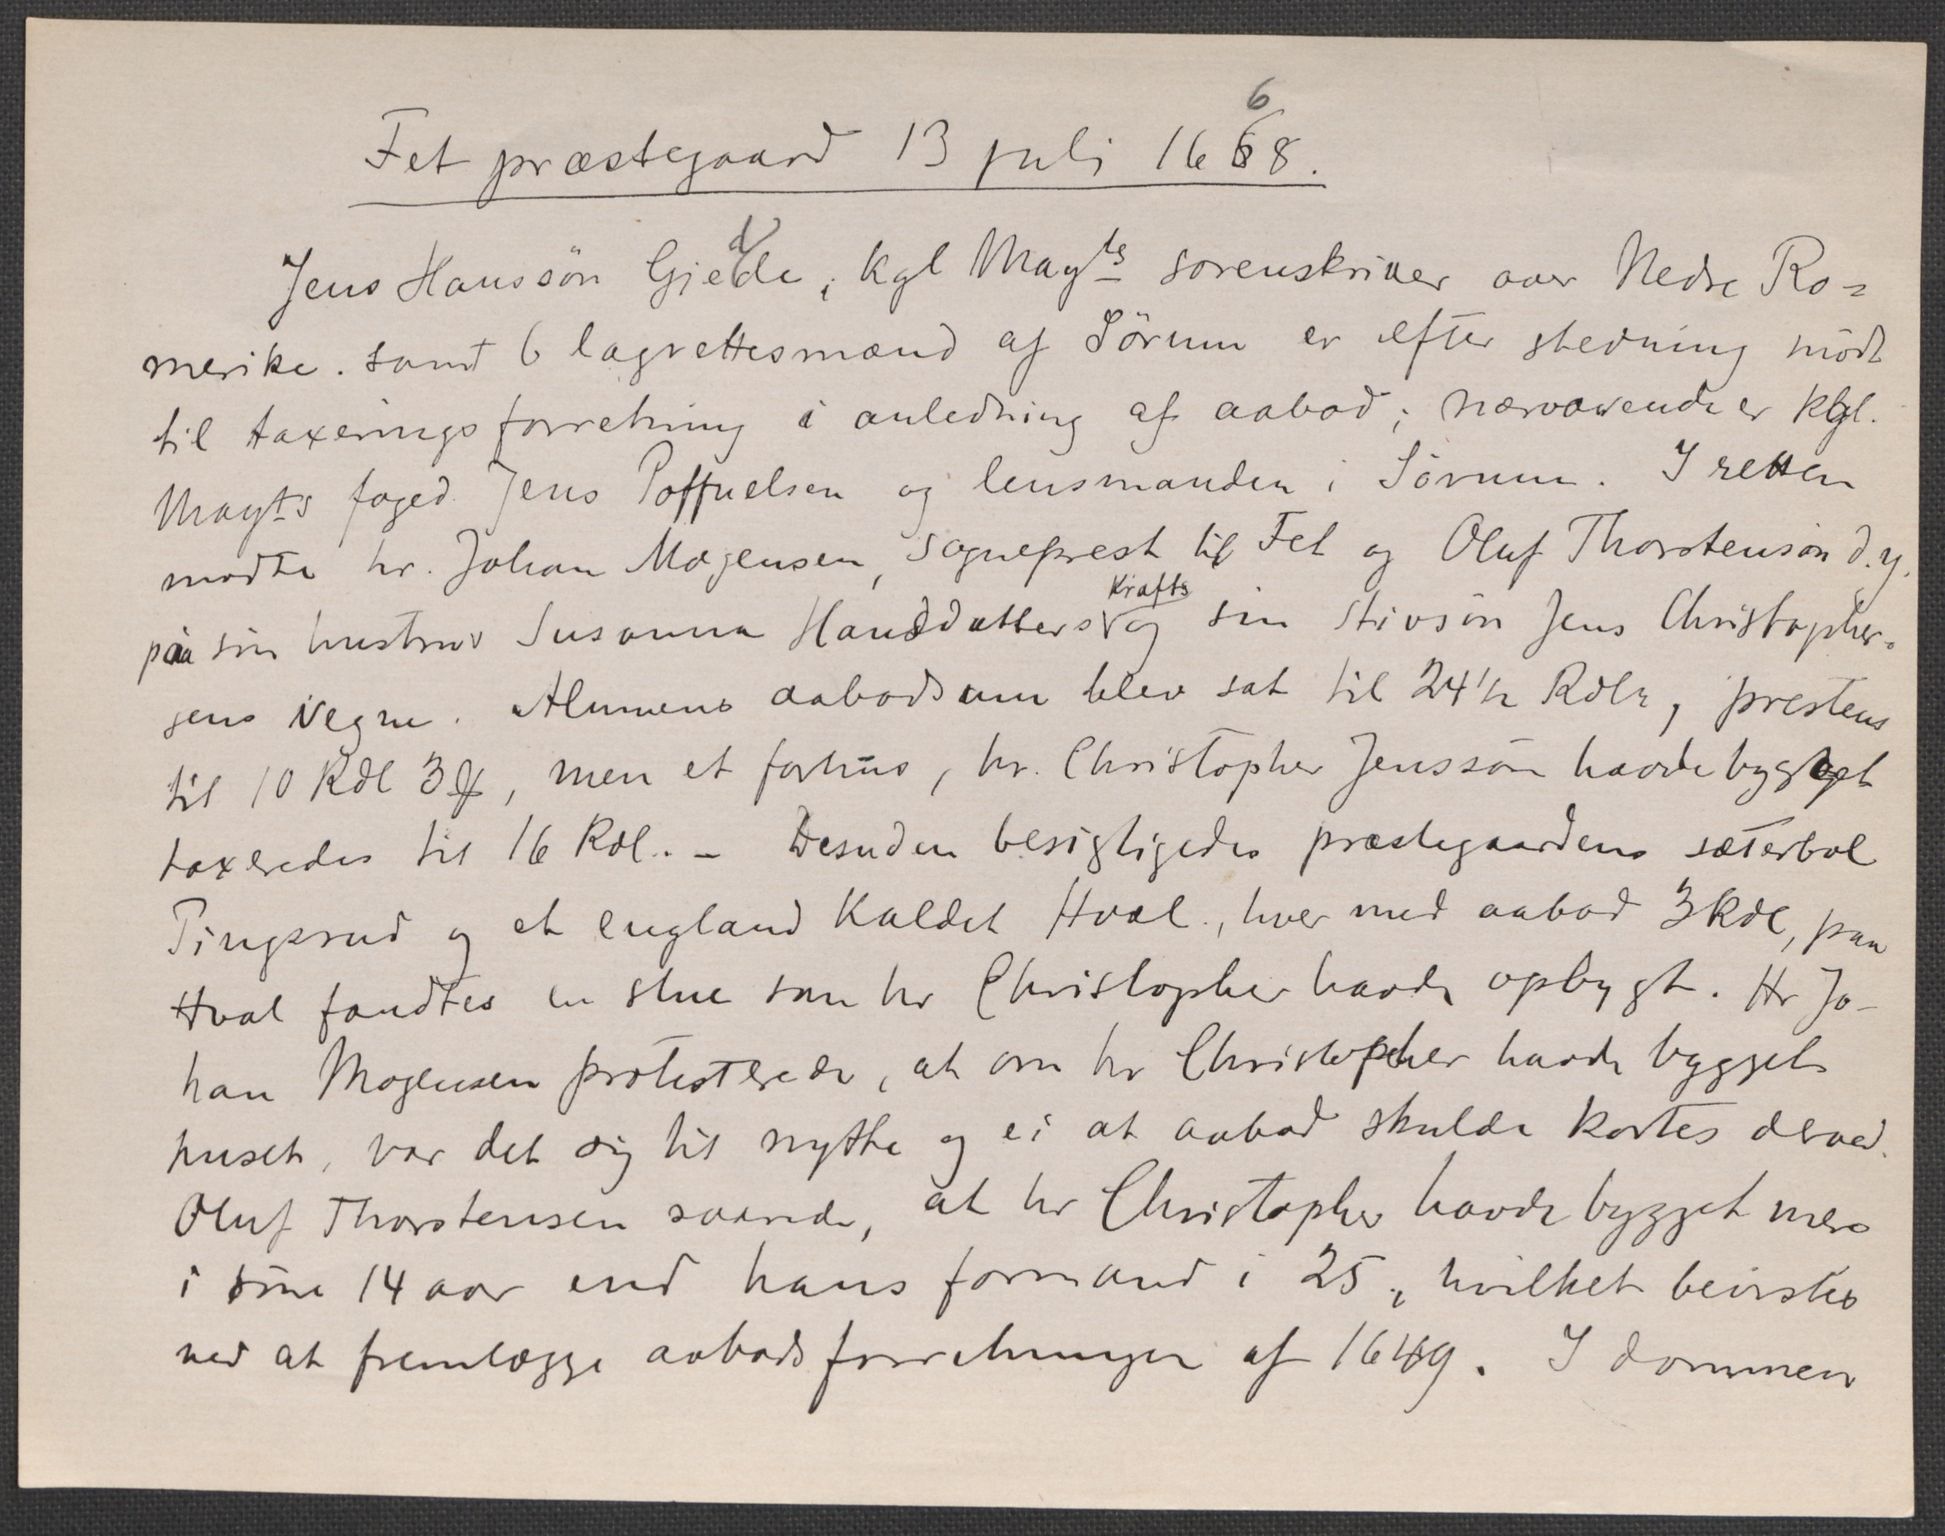 Fet præstegaard 13 juli 1668.
Jens Hanssön Gjedde, Kgl Mayts sorenskriver over Nedre Ro=
merike. samt 6 lagrettesmænd af Sörum er efter stevning mödt
til taxeringsforretning i anledning af aabod; nærværende er kgl.
Mayts foged Jens Poffuelsen og lensmanden i Sörum. I retten
mødte hr. Johan Mogensen, sogneprest til Fet og Oluf Thorstensön d.y.
paa sin hustrus Susanna Hansdatters Krafts og sin stivsön Jens Christopher-
sens vegne. Alunens aabodsum blev sat til 24½ Rdlr, prestens
til 10 Rdl 3 ß, men et forhus, hr. Christopher Jenssön havde bygget
taxeredes til 16 Rdl. - Desuden besigtigedes præstegaardens sæterbol
Tingsrud og et england kaldet Hval, hver med aabod 3 Rdl, paa
Hval fandtes en stue som hr Christopher havde opbygt. Hr Jo-
han Mogensen protesterede, at om hr Christopher havde bygget
huset, var det sig til nytte og ei at aabod skulde kortes derved.
Oluf Thorstensen svarede, at hr Christopher havde bygget mere
i sine 14 aar end hans formand i 25, hvilket bevistes
ved at fremlægge aabodsforretningen af 1649. I dommen